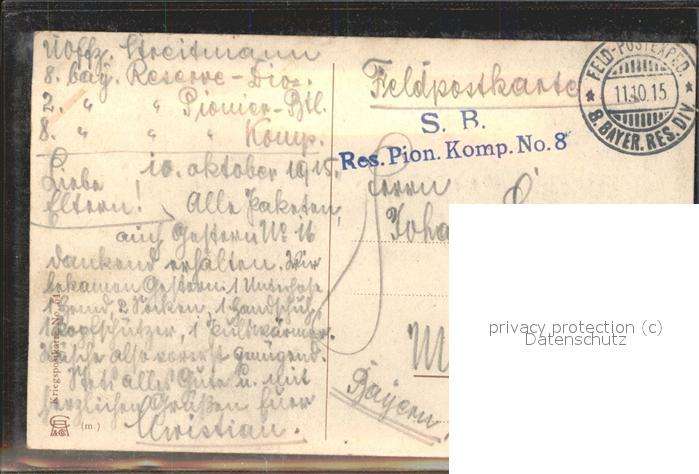 Uoffz. Streitmann
8. bay. Reserve-Div.
2. " " Pionier-Btl.
8. " " " Komp.
10. Oktober 1915.
Liebe
Eltern! Alle Paketen,
auch Gestern No 16
dankend erhalten. Wir
bekamen Gestern: 1 Unterhose
1 Hemd, 2 Socken, 1 Handschuh,
1 Kopfschützer, 1 Pulswärmer.
also vorerst genügend.
Stets alles Gute u. mit
herzlichen Grüßen Euer
Christian.
Feldpostkarte
S. B.
Res. Pion. Komp. No. 8
FELD-POSTEXPED.
11.10.15
8. BAYER. RES. DIV.
Herrn
Joha
M
Bayern.
Kriegspostkarte No.
(m.)
privacy protection (c)
Datenschutz